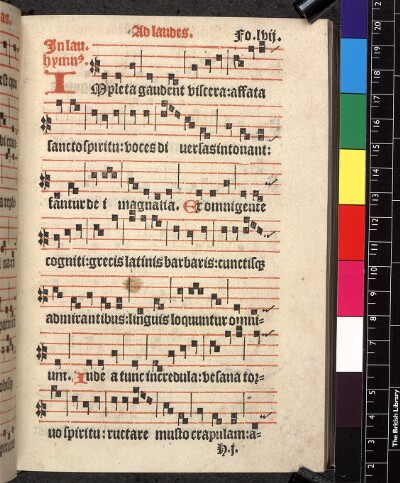 Ad laudes.
Fo.lvij.
In lau.
hymn⁹.
IMpleta gaudent viscera:afflata
sancto spiritu:voces di uersas intonant:
fantur de i magnalia. Ex omni gente
cogniti:grecis latinis barbaris:cunctisq̃
admirantibus:linguis loquuntur omni-
um. Iude a tunc incredula:vesana tor-
uo spiritu:ructare musto crapulam:a-
H.j.
The British Library
2 3 4 5 6 7 8 9 10 11 12 13 14 15 16 17 18 19 20